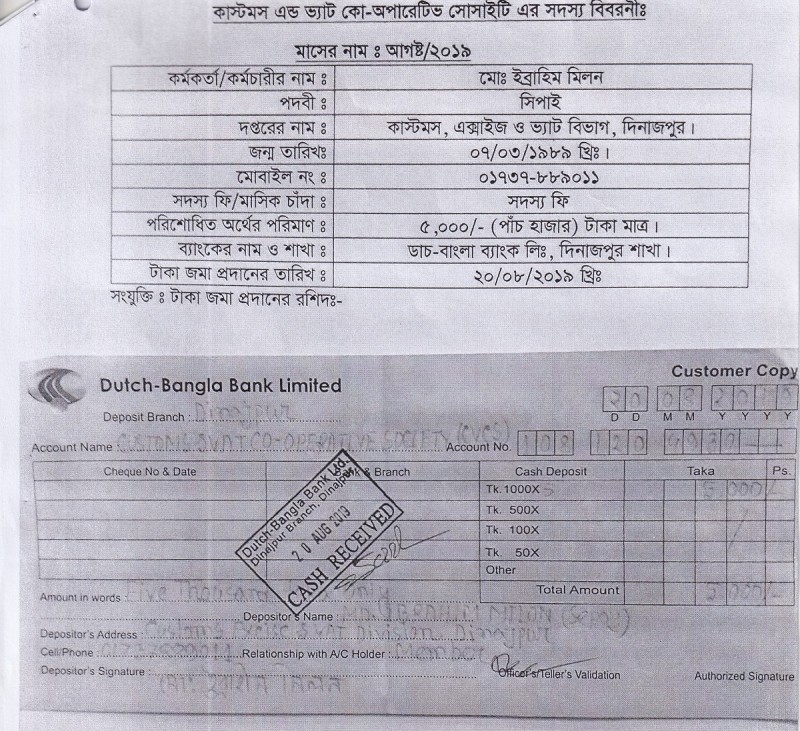 কাস্টমস এন্ড ভ্যাট কো-অপারেটিভ সোসাইটি এর সদস্য বিবরনীঃ
মাসের নাম ঃ আগষ্ট/২০১৯
কর্মকর্তা/কর্মচারীর নাম ঃ মোঃ ইব্রাহিম মিলন
পদবী ঃ সিপাই
দপ্তরের নাম ঃ কাস্টমস, এক্সাইজ ও ভ্যাট বিভাগ, দিনাজপুর।
জন্ম তারিখঃ ০৭/০৩/১৯৮৯ খ্রিঃ।
মোবাইল নং ঃ ০১৭৩৭-৮৮৯০১১
সদস্য ফি/মাসিক চাঁদা ঃ সদস্য ফি
পরিশোধিত অর্থের পরিমাণ ঃ ৫,০০০/- (পাঁচ হাজার) টাকা মাত্র।
ব্যাংকের নাম ও শাখা ঃ ডাচ-বাংলা ব্যাংক লিঃ, দিনাজপুর শাখা।
টাকা জমা প্রদানের তারিখ ঃ ২০/০৮/২০১৯ খ্রিঃ
সংযুক্তি ঃ টাকা জমা প্রদানের রশিদঃ-
Customer Copy
Dutch-Bangla Bank Limited
20 08 2019
D D M M Y Y Y Y
Deposit Branch : Dinajpur
Account Name CUSTOMS & VAT CO-OPERATIVE SOCIETY (CVCS) Account No. 108 120
Cheque No & Date Bank & Branch Cash Deposit Taka Ps.
Tk. 1000X 5 5,000/-
Tk. 500X
Tk. 100X
Tk. 50X
Other
Total Amount 5,000/-
Dutch-Bangla Bank Ltd.
Dinajpur Branch, Dinajpur
20 AUG 2019
CASH RECEIVED
Amount in words : Five Thousand only
Depositor's Name : MD. EBRAHIM MILON (Sepoy)
Depositor's Address : Customs Excise & VAT Division, Dinajpur
Cell/Phone : Relationship with A/C Holder : Member
Depositor's Signature : মোঃ ইব্রাহিম মিলন
Officer's/Teller's Validation Authorized Signature